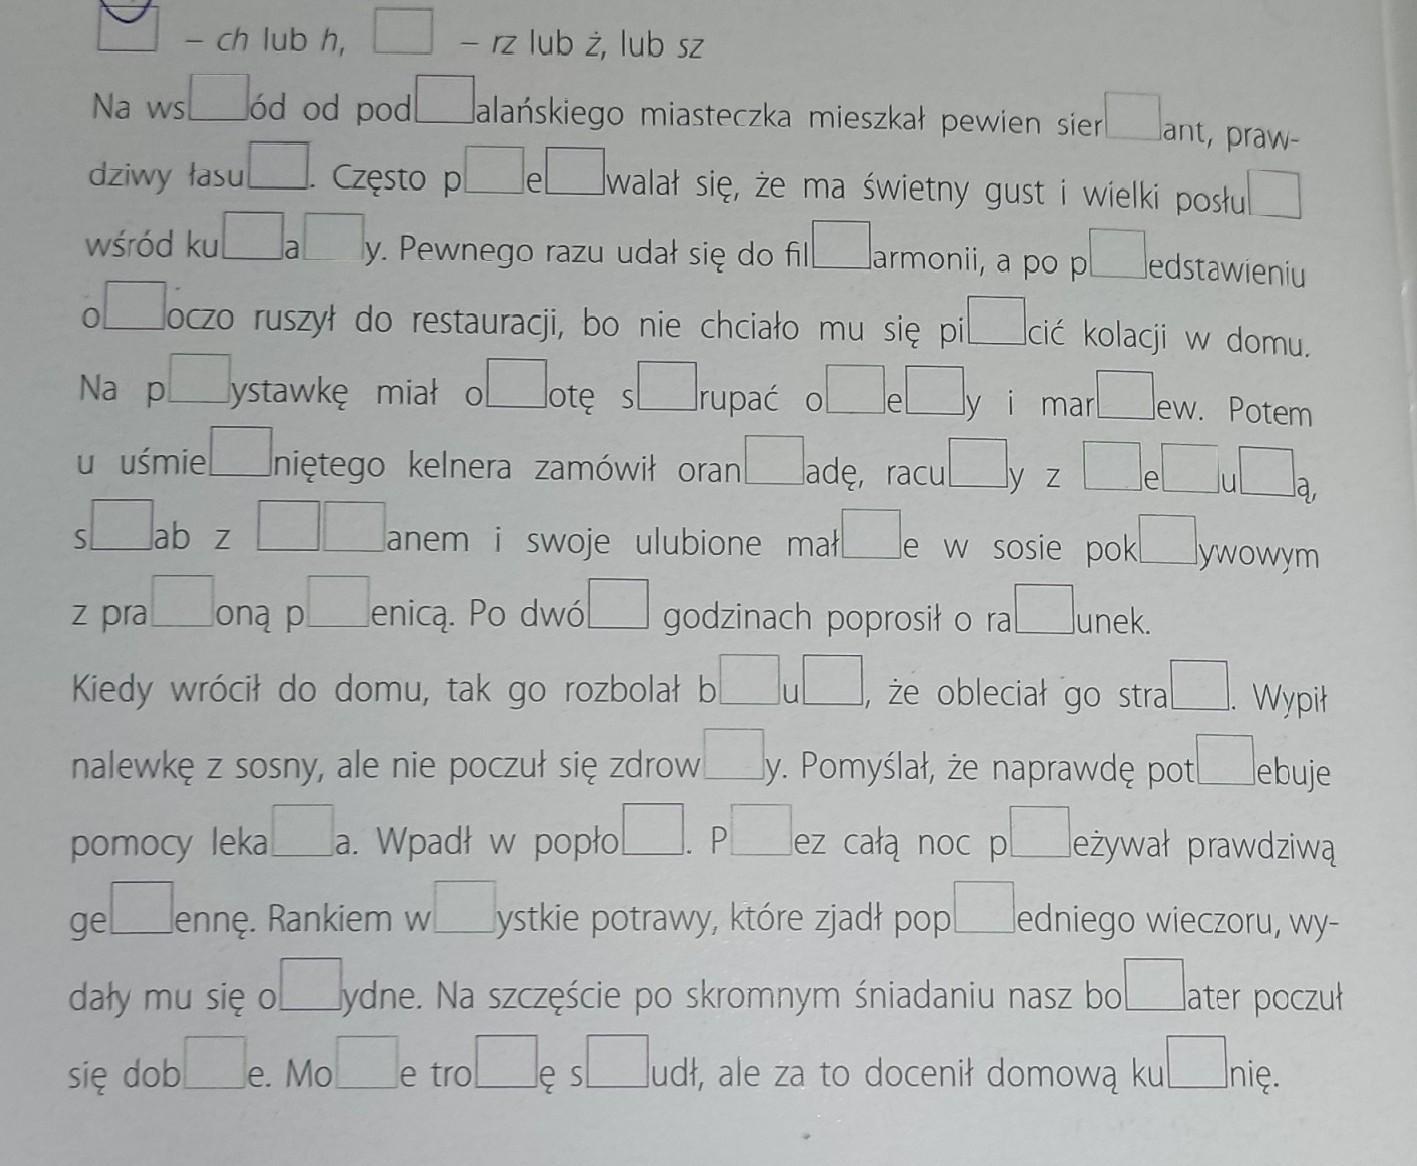 □ – ch lub h, □ – rz lub ż, lub sz
Na ws□ód od pod□alańskiego miasteczka mieszkał pewien sier□ant, praw-
dziwy łasu□. Często p□e□walał się, że ma świetny gust i wielki posłu□
wśród ku□a□y. Pewnego razu udał się do fil□armonii, a po p□edstawieniu
o□oczo ruszył do restauracji, bo nie chciało mu się pi□cić kolacji w domu.
Na p□ystawkę miał o□otę s□rupać o□e□y i mar□ew. Potem
u uśmie□niętego kelnera zamówił oran□adę, racu□y z □e□u□ą,
s□ab z □□anem i swoje ulubione mał□e w sosie pok□ywowym
z pra□oną p□enicą. Po dwó□ godzinach poprosił o ra□unek.
Kiedy wrócił do domu, tak go rozbolał b□u□, że obleciał go stra□. Wypił
nalewkę z sosny, ale nie poczuł się zdrow□y. Pomyślał, że naprawdę pot□ebuje
pomocy leka□a. Wpadł w popło□. P□ez całą noc p□eżywał prawdziwą
ge□ennę. Rankiem w□ystkie potrawy, które zjadł pop□edniego wieczoru, wy-
dały mu się o□ydne. Na szczęście po skromnym śniadaniu nasz bo□ater poczuł
się dob□e. Mo□e tro□ę s□udł, ale za to docenił domową ku□nię.